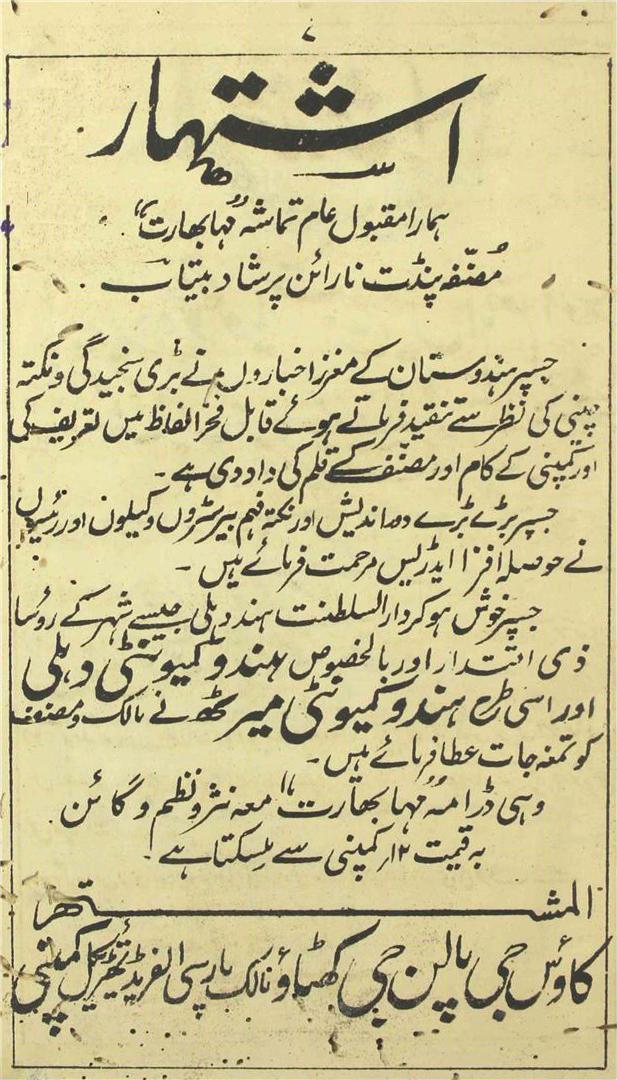 اشتہار
ہمارا مقبول عام تماشہ "مہابھارت"
مُصنّفہ پنڈت نارائن پرشاد بیتاب
جسپر ہندوستان کے معزز اخباروں نے بڑی سنجیدگی و نکتہ
چینی کی نظر سے تنقید فرماتے ہوئے قابل فخر الفاظ میں تعریف کی
اور کمپنی کے کام اور مصنّف کے قلم کی داد دی ہے۔
جسپر بڑے بڑے دوراندیش اور نکتہ فہم بیرسٹروں وکیلوں اور رئیسوں
نے حوصلہ افزا ایڈریس مرحمت فرمائے ہیں۔
جسپر خوش ہو کر دارالسلطنت ہند دہلی جیسے شہر کے روئسا
ذی اقتدار اور بالخصوص ہندو کمیونٹی دہلی
اور اسی طرح ہندو کمیونٹی میرٹھ نے مالک و مصنف
کو تمغہ جات عطا فرمائے ہیں۔
وہی ڈرامہ "مہابھارت" معہ نثر و نظم و گائن
بہ قیمت ۱۲؍ کمپنی سے مِسکتا ہے۔
المشتہر
کاؤس جی پالن جی کھٹاؤ مالک پارسی الفریڈ تھیٹریکل کمپنی